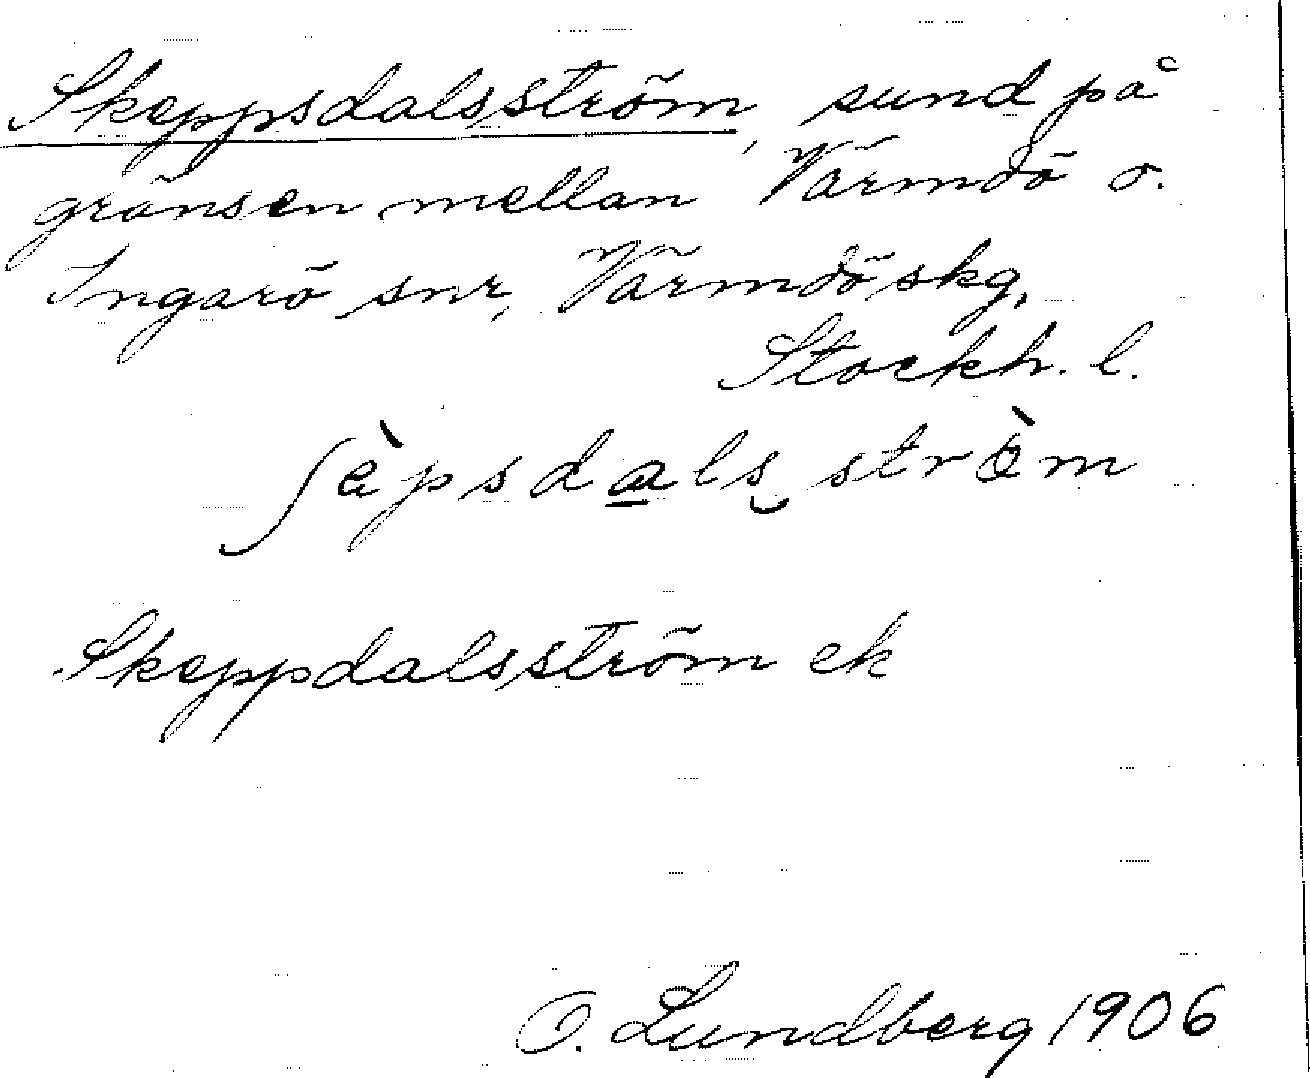 Skeppsdalsström, sund på
gränsen mellan Värmdö o.
Ingarö snr, Värmdö skg,
Stockh. l.
ʃὲpsdals̮ strὲm
Skeppdalsström ek
O. Lundberg 1906